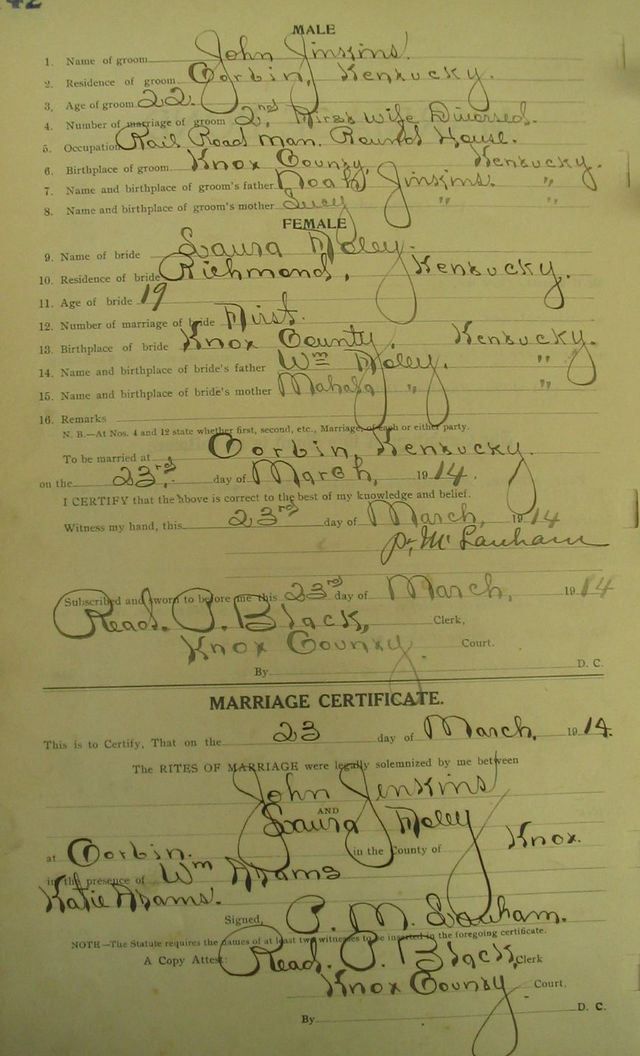 42
MALE
1. Name of groom John Jinskins.
2. Residence of groom Corbin, Kentucky.
3. Age of groom 22.
4. Number of marriage of groom 2nd, First Wife Divorsed.
5. Occupation Rail Road man. Round House.
6. Birthplace of groom Knox County, Kentucky.
7. Name and birthplace of groom's father Noah Jinskins. "
8. Name and birthplace of groom's mother Lucy " "
FEMALE
9. Name of bride Laura Foley.
10. Residence of bride Richmond, Kentucky.
11. Age of bride 19
12. Number of marriage of bride First.
13. Birthplace of bride Knox County, Kentucky.
14. Name and birthplace of bride's father Wm Foley. "
15. Name and birthplace of bride's mother Mahala " "
16. Remarks
N. B.—At Nos. 4 and 12 state whether first, second, etc., Marriage, of each or either party.
To be married at Corbin, Kentucky.
on the 23rd. day of March, 1914.
I CERTIFY that the above is correct to the best of my knowledge and belief.
Witness my hand, this 23rd day of March, 1914
P. M. Lanham
Subscribed and sworn to before me this 23rd day of March, 1914
Read. P. Black, Clerk,
Knox County Court.
By D. C.
MARRIAGE CERTIFICATE.
This is to Certify, That on the 23 day of March, 1914.
The RITES OF MARRIAGE were legally solemnized by me between
John Jenkins
AND
Laura Foley
at Corbin. in the County of Knox.
in the presence of Wm Adams
Katie Adams.
Signed, P. M. Lanham.
NOTE—The Statute requires the names of at least two witnesses to be inserted in the foregoing certificate.
A Copy Attest: Read. P. Black, Clerk
Knox County Court.
By D. C.